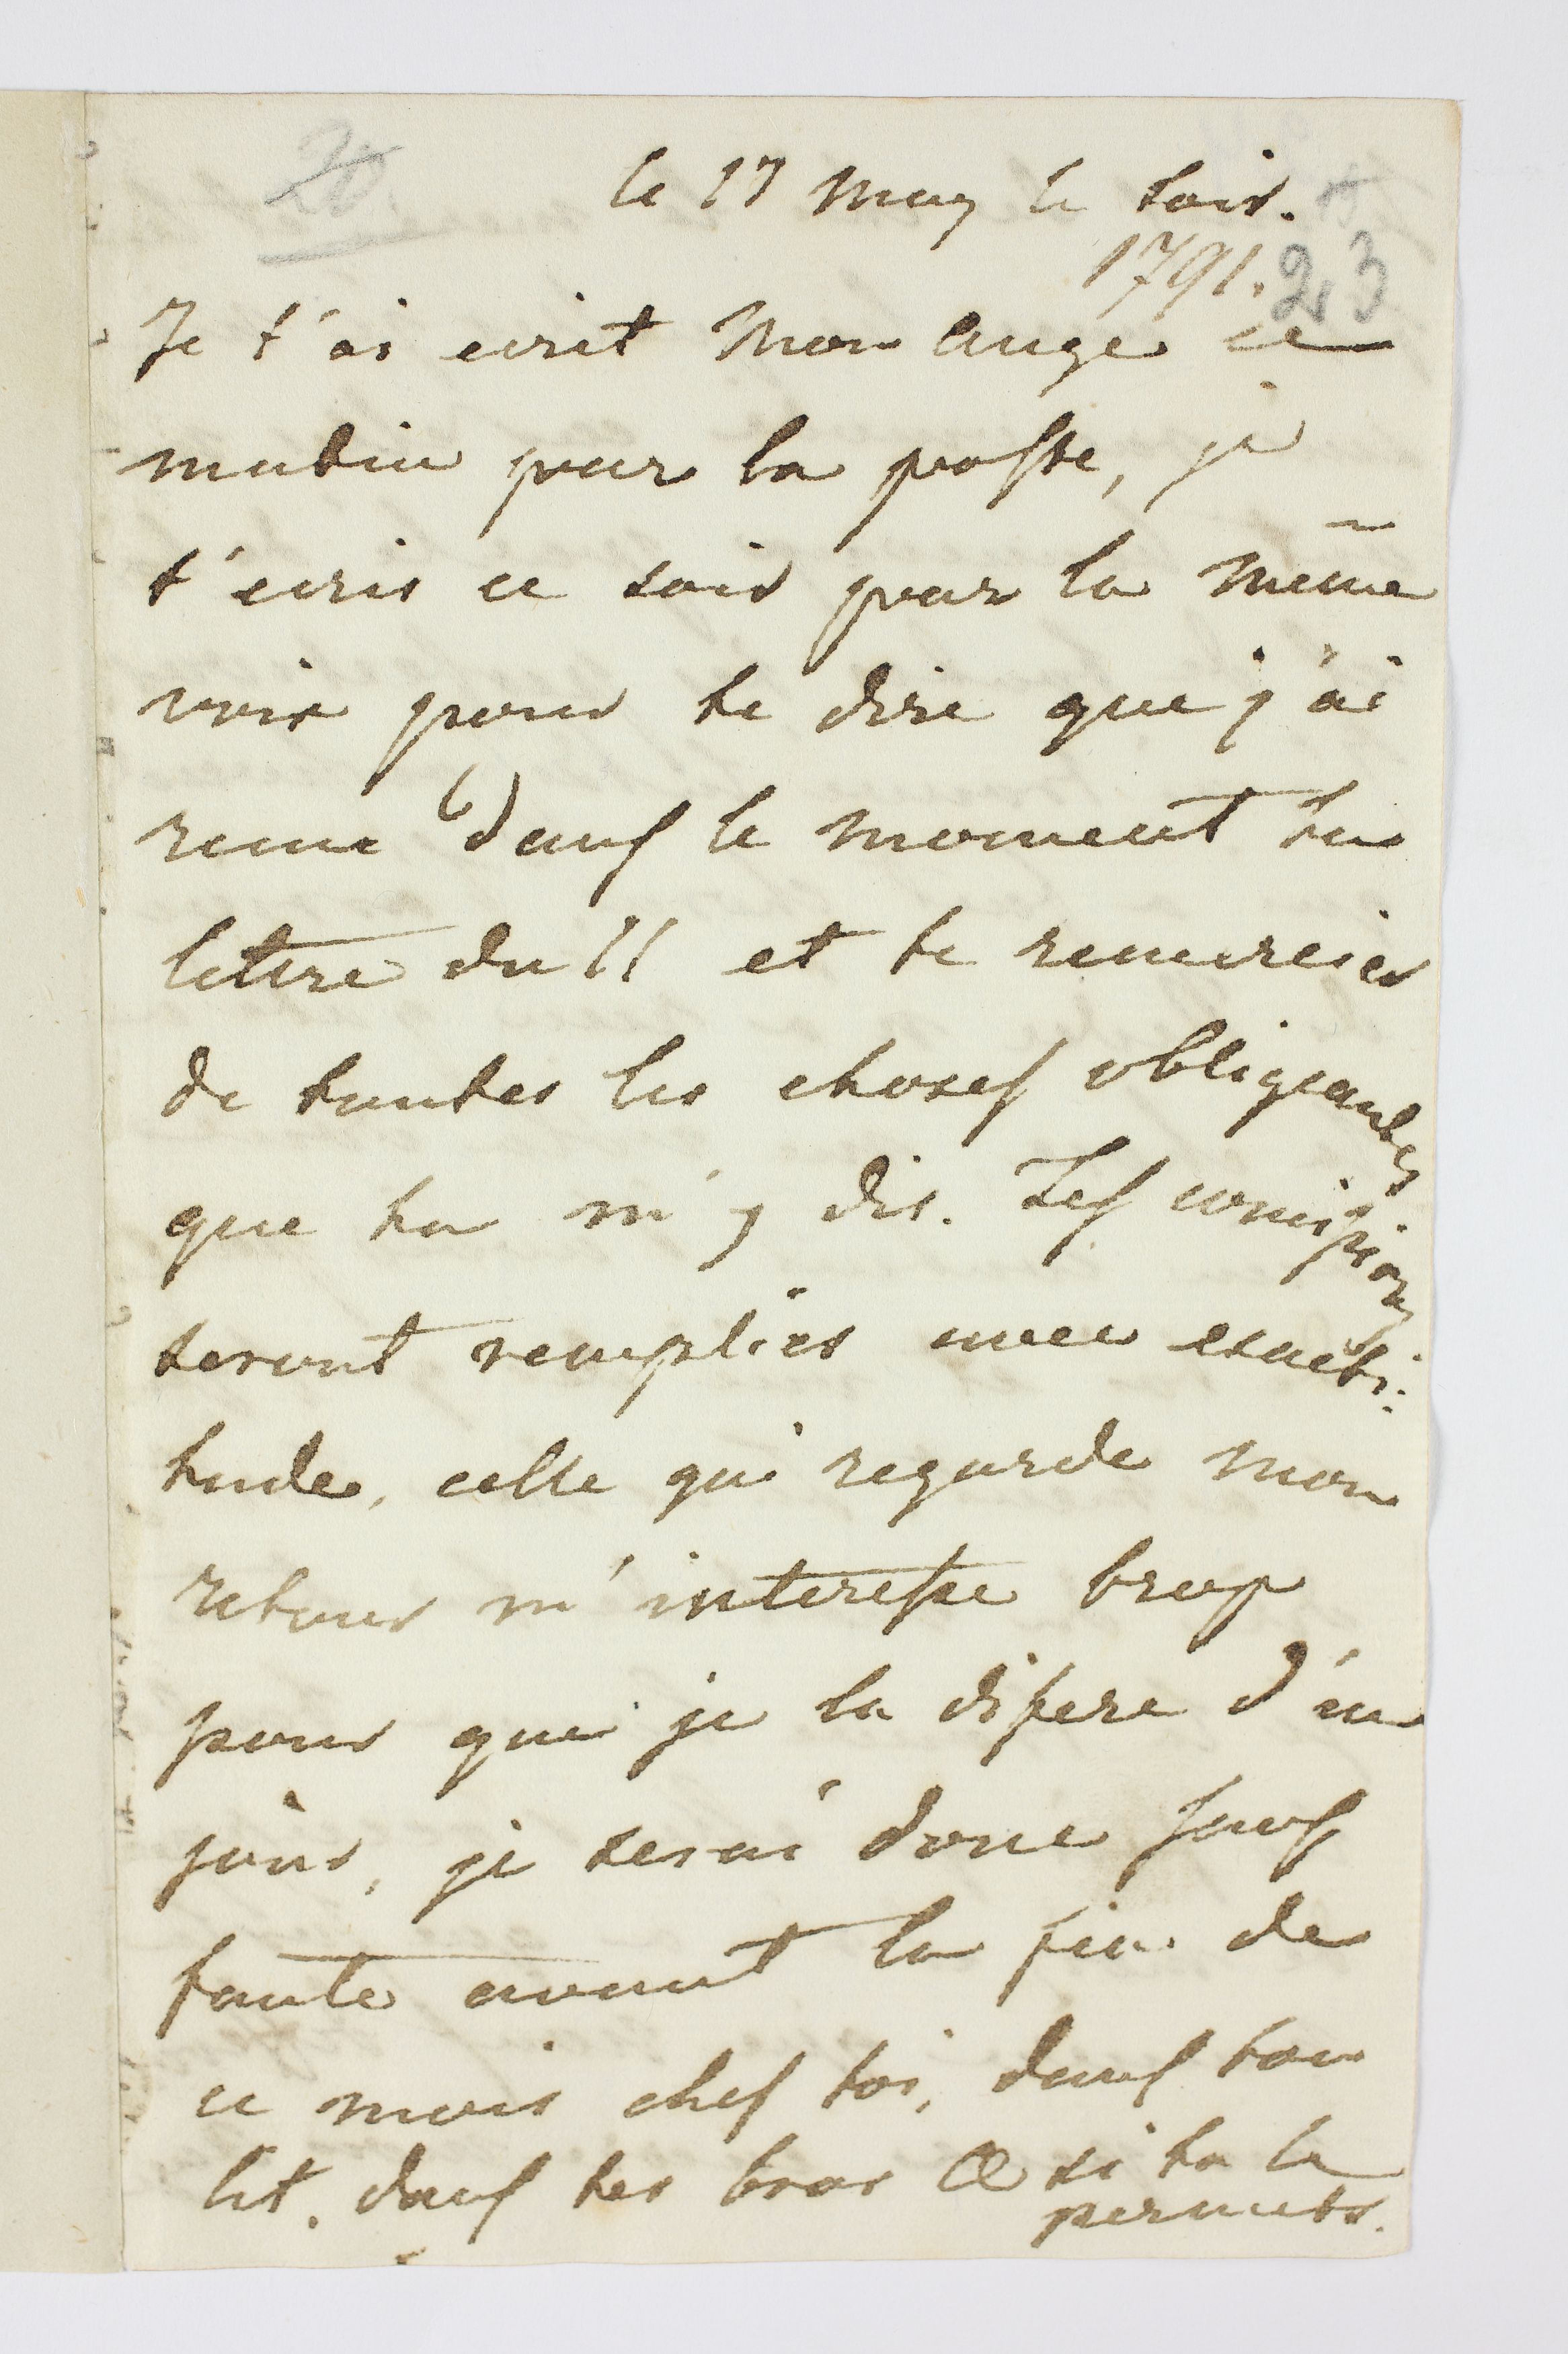 20.
le 17 May le soir.
1791. 23
Je t'ai ecrit Mon Ange ce
matin par la poste, je
t'ecris ce soir par la même
voie pour te dire que j'ai
recue dans le moment ta
lettre du 11 et te remercies
de toutes les choses obligeantes
que tu m'y dis. Tes comissions
seront remplies avec exacti-
tude, celle qui regarde mon
retour m'interesse trop
pour que je la difere d'un
jour, je serai donc sans
faute avant la fin de
ce mois ches toi, dans ton
lit, dans tes bras si tu le
permets.